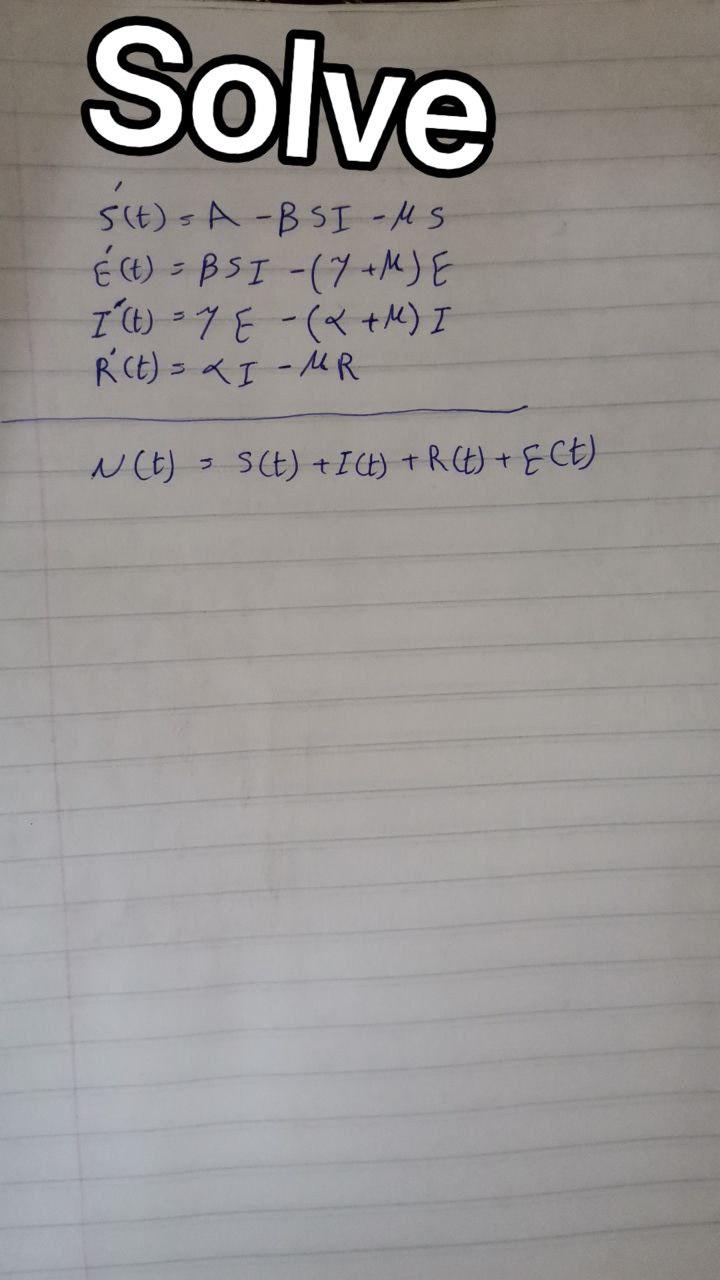 Solve
S'(t) = A - βSI - μS
E'(t) = βSI - (γ+μ)E
I'(t) = γE - (α+μ)I
R'(t) = αI - μR
N(t) = S(t) + I(t) + R(t) + E(t)